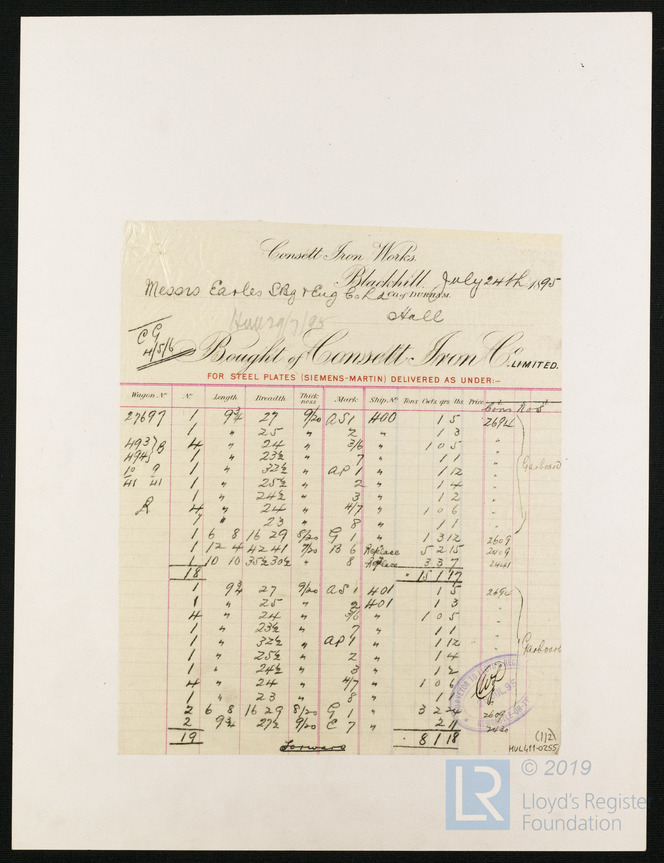 Consett Iron Works.
Blackhill, July 24th 1895
Messrs Earles SBg & Eng Co Ld Co. of DURHAM.
Hull
Hull 29/7/95
CG
4/5/6
Bought of Consett Iron Co. LIMITED.
FOR STEEL PLATES (SIEMENS-MARTIN) DELIVERED AS UNDER:-
Wagon No No Length Breadth Thickness Mark Ship. No Tons Cwts. qrs. lbs. Price
27697 1 9¾ 27 9/20 AS1 400 1 5 2692
1 " 25 " 2 " 1 3 "
493 B 4 " 24 " 3/6 " 1 0 5 "
494 1 " 23½ " 7 " 1 1 "
10 9 1 " 32½ " AP1 " 1 12 " Garboard
41 41 1 " 25½ " 2 " 1 4 "
1 " 24½ " 3 " 1 2 "
R 4 " 24 " 4/7 " 1 0 6 "
" 23 " 8 " 1 1 "
1 6 8 16 29 8/20 G 1 " 1 3 12 2609
1 12 4 42 41 7/20 B 6 Replace 5 2 15 2409
1 10 10 35½ 30½ " 8 Replace 3 3 7 2441
18 15 1 17
1 9¾ 27 9/20 AS1 401 1 5 2692
1 " 25 " 2 401 1 3 "
4 " 24 " 3/6 " 1 0 5 "
1 " 23½ " 7 " 1 1
1 " 32½ " AP1 " 1 12 Garboard
1 " 25½ " 2 " 1 4
1 " 24½ " 3 " 1 2
4 " 24 " 4/7 " 1 0 6
1 " 23 " 8 " 1 1
2 6 8 16 29 8/20 G 1 " 3 2 24 2609
2 9¾ 27½ 9/20 C 7 " 2 11
19 Forward 8 1 18
(1/2)
HUL411-0255
© 2019
LR
Lloyd's Register
Foundation